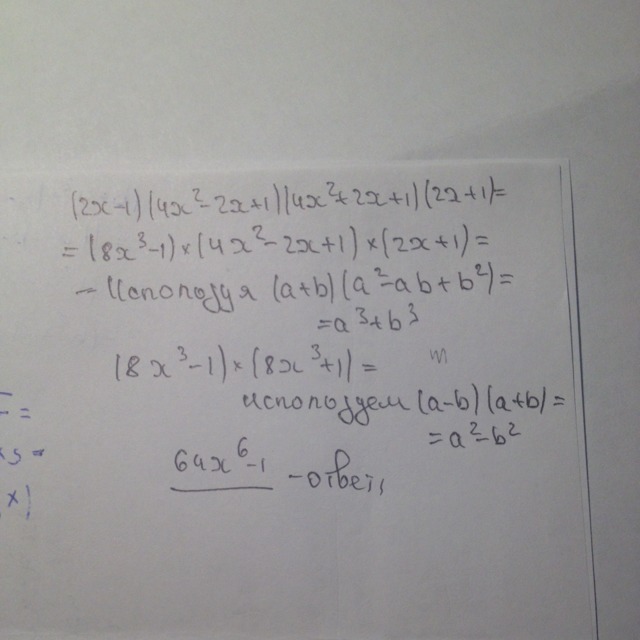 (2x-1)(4x²-2x+1)(4x²+2x+1)(2x+1)=
=(8x³-1)×(4x²-2x+1)×(2x+1)=
- Используя (a+b)(a²-ab+b²)=
=a³+b³
(8x³-1)×(8x³+1)=
используем (a-b)(a+b)=
=a²-b²
64x⁶-1 - ответ,